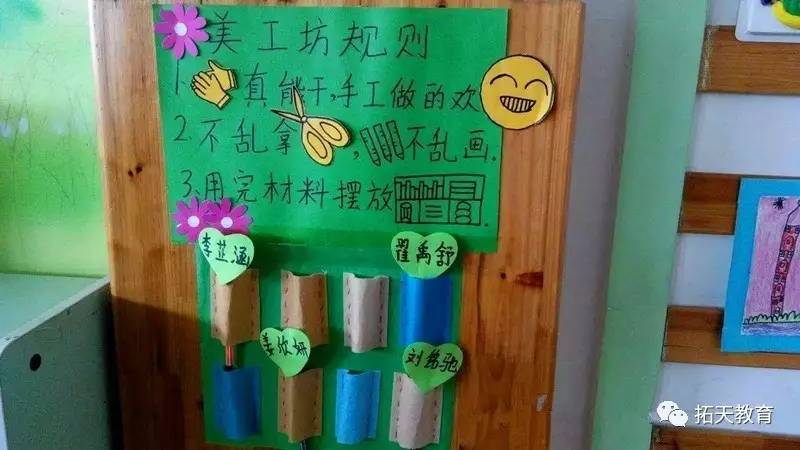 美工坊规则
1.真能干,手工做的欢
2.不乱拿,不乱画.
3.用完材料摆放.
李芷涵
翟禹舒
姜欣妍
刘铭驰
拓天教育